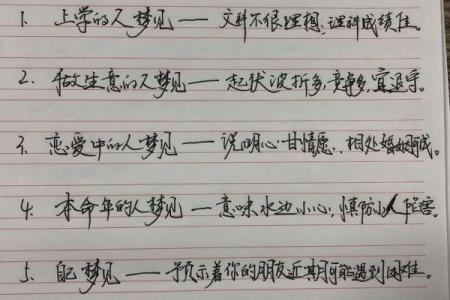 1. 上学的人梦见——文科不很理想,理科成绩佳。
2. 做生意的人梦见——起伏波折多,竞争多,宜退守。
3. 恋爱中的人梦见——说明心甘情愿,相处婚姻可成。
4. 本命年的人梦见——意味水边小心,慎防小人陷害。
5. 自己梦见——预示着你的朋友近期可能遇到困难。